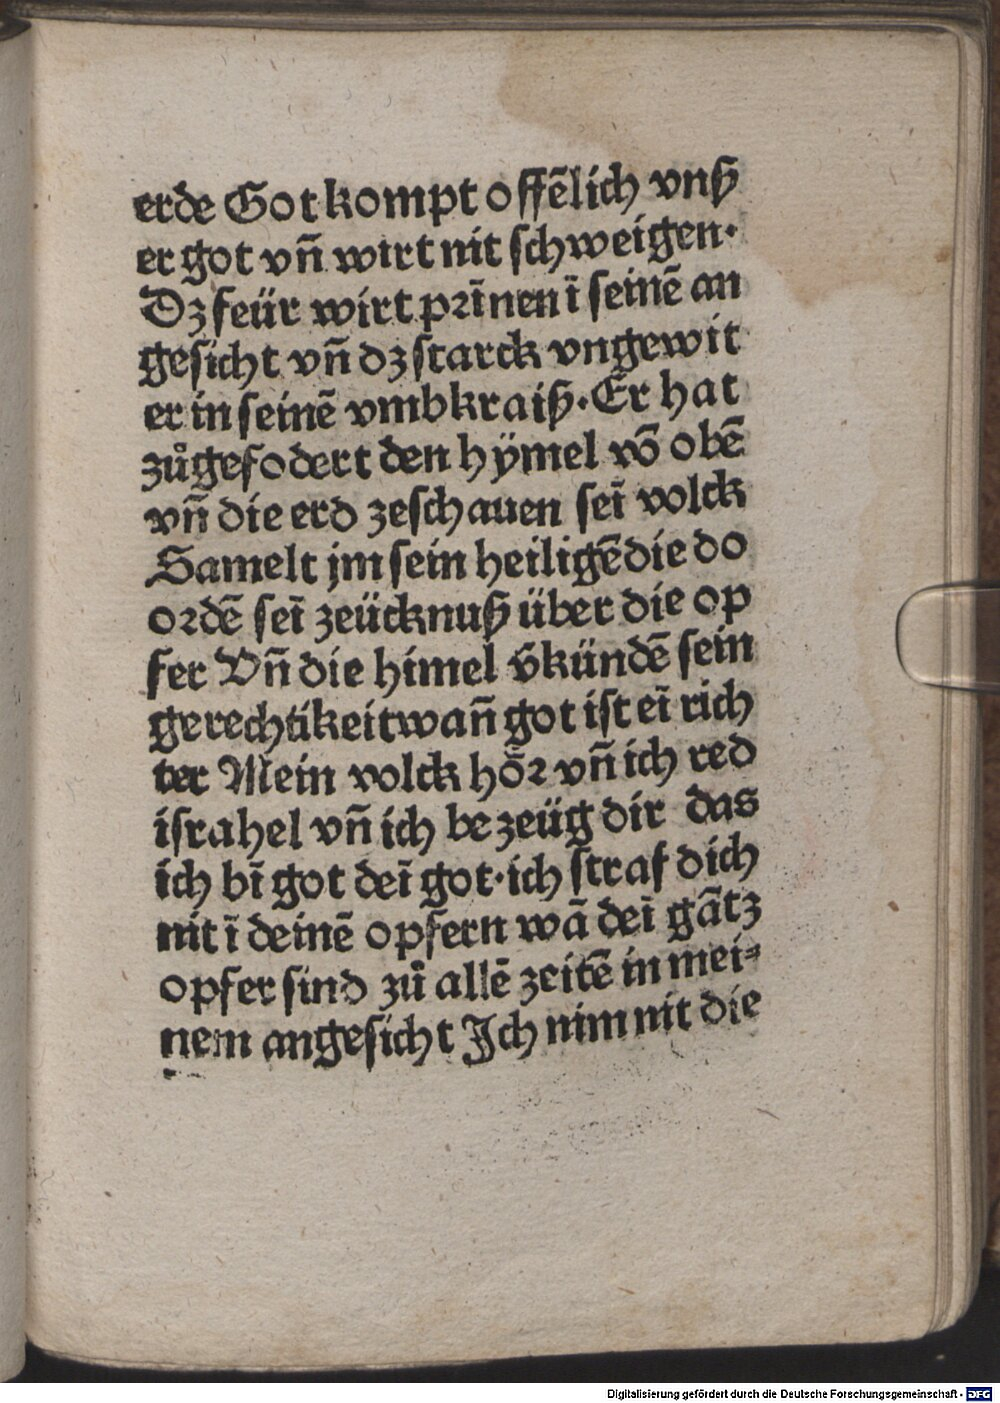 erde Got kompt offēlich vnß
er got vñ wirt nit schweigen·
Dz feür wirt prīnen ī seinē an
gesicht vñ dz starck vngewit
er in seinē vmbkraiß·Er hat
zůgefodert den hÿmel vō obē
vñ die erd zeschauen seī volck
Samelt jm sein heiligē die do
ordē seī zeücknuß über die op
fer Vñ die himel v̄kündē sein
gerechtikeit wañ got ist eī rich
ter Mein volck hör vñ ich red
israhel vñ ich bezeüg dir das
ich bī got deī got·ich straf dich
nit ī deinē opfern wā deī gātz
opfer sind zů allē zeitē in mei⸗
nem angesicht Ich nim nit die
Digitalisierung gefördert durch die Deutsche Forschungsgemeinschaft - DFG